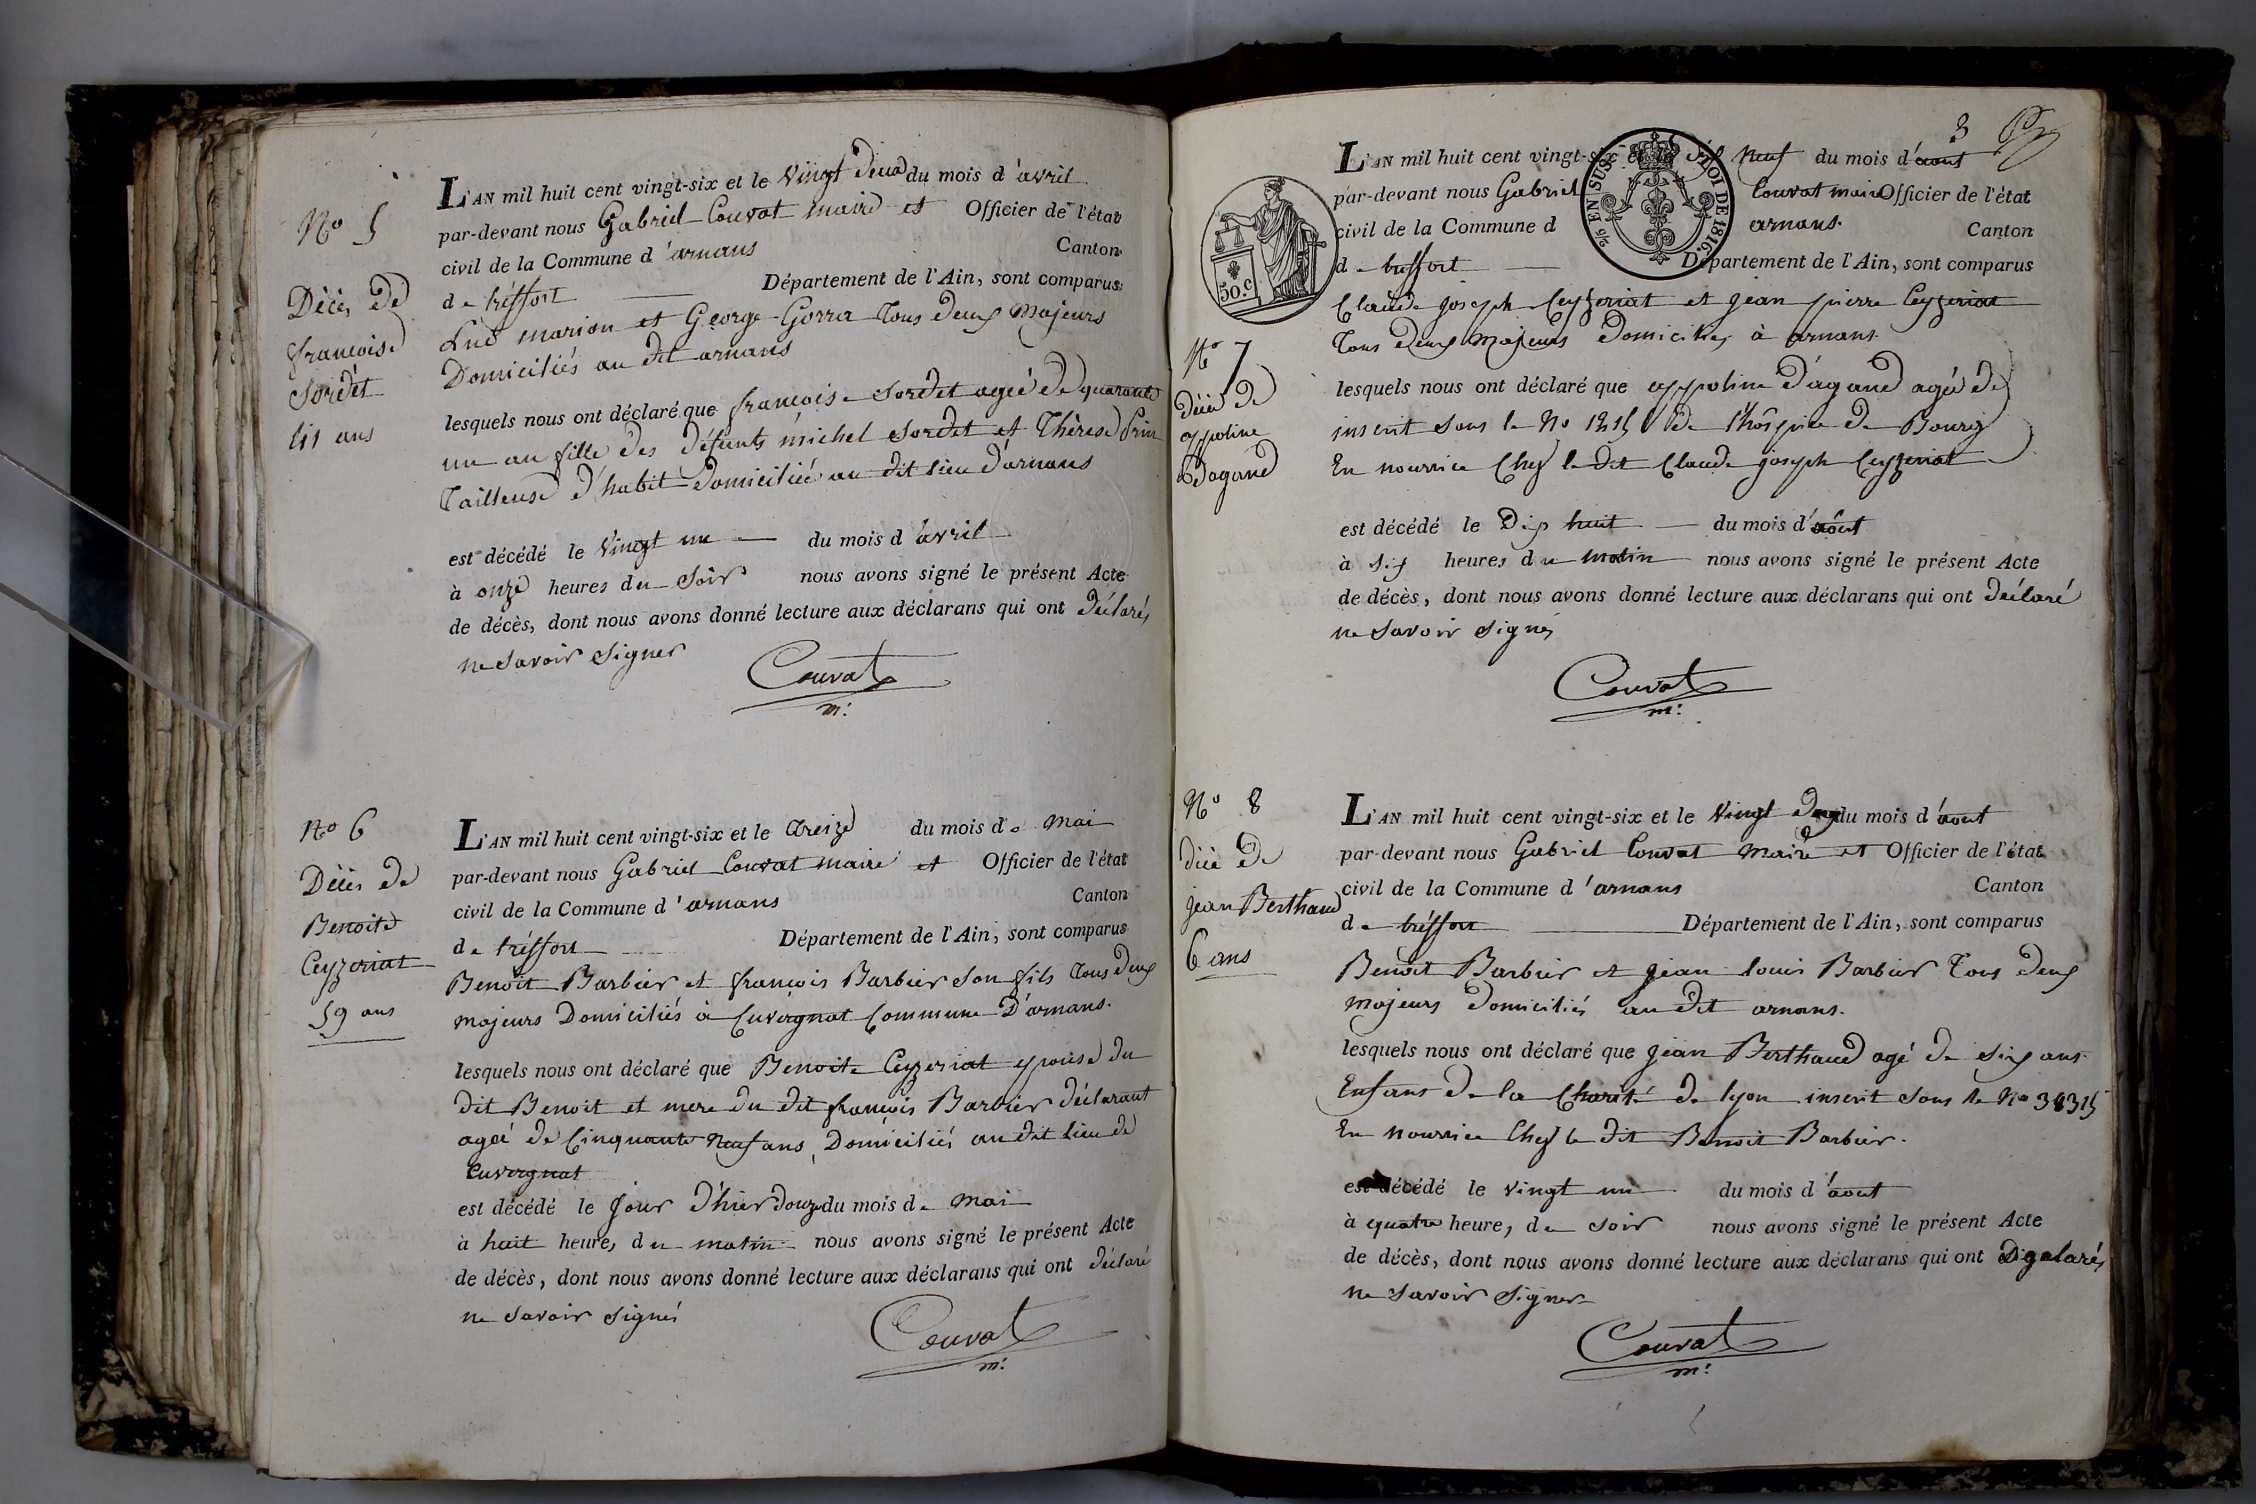 No 5
Décès de
françoise
Sordet
41 ans
L'AN mil huit cent vingt-six et le vingt deux du mois d'avril
par-devant nous Gabriel Couvat maire et Officier de l'état
civil de la Commune d'arnans Canton
de tréffort Département de l'Ain, sont comparus
Luc marion et George Gorra tous deux majeurs
Domiciliés au dit arnans
lesquels nous ont déclaré que françoise Sordet ageé de quarante
un an fille des défunts michel Sordet et Thèrese
Tailleuse d'habit domiciliée au dit lieu d'arnans
est décédé le vingt un du mois d'avril
à onze heures du soir nous avons signé le présent Acte
de décès, dont nous avons donné lecture aux déclarans qui ont déclarés
ne savoir signer
Couvat
m.
No 6
Décès de
Benoite
Ceyzeriat
59 ans
L'AN mil huit cent vingt-six et le treize du mois de mai
par-devant nous Gabriel Couvat maire et Officier de l'état
civil de la Commune d'arnans Canton
de tréffort Département de l'Ain, sont comparus
Benoit Barbier et françois Barbier son fils tous deux
majeurs Domiciliés à Cuvergnat Commune D'arnans.
lesquels nous ont déclaré que Benoite Ceyzeriat epouse du
dit Benoit et mere du dit françois Barbier déclarant
ageé de Cinquante neuf ans, Domiciliés au dit lieu de
Cuvergnat
est décédé le jour d'hier douze du mois de mai
à huit heures du matin nous avons signé le présent Acte
de décès, dont nous avons donné lecture aux déclarans qui ont déclaré
ne savoir signés
Couvat
m.
8
EN SUS
LOI DE 1816.
50.c
No 7
décé de
appoline
Dagand
L'AN mil huit cent vingt-six et le dix neuf du mois d'août
par-devant nous Gabriel Couvat maire Officier de l'état
civil de la Commune d arnans. Canton
de treffort Département de l'Ain, sont comparus
Claude joseph Ceyzeriat et jean pierre Ceyzeriat
tous deux majeurs domiciliés à arnans.
lesquels nous ont déclaré que appoline d'agand agée de
inscrit sous le No de l'hôspice de Bourg
En nourrice Chez le dit Claude joseph Ceyzeriat
est décédé le Dix huit du mois d'août
à six heures du matin nous avons signé le présent Acte
de décès, dont nous avons donné lecture aux déclarans qui ont déclaré
ne savoir signés
Couvat
m.
No 8
décé de
jean Berthaud
6 ans
L'AN mil huit cent vingt-six et le vingt deux du mois d'aout
par-devant nous Gabriel Couvat maire et Officier de l'état
civil de la Commune d'arnans Canton
de tréffort Département de l'Ain, sont comparus
Benoit Barbier et jean louis Barbier tous deux
majeurs domiciliés au dit arnans.
lesquels nous ont déclaré que jean Berthaud agé de six ans
Enfans de la Charité de lyon inscrit sous le No
En nourrice Chez le dit Benoit Barbier.
est décédé le vingt un du mois d'aout
à quatre heures de soir nous avons signé le présent Acte
de décès, dont nous avons donné lecture aux déclarans qui ont
ne savoir signer
Couvat
m.